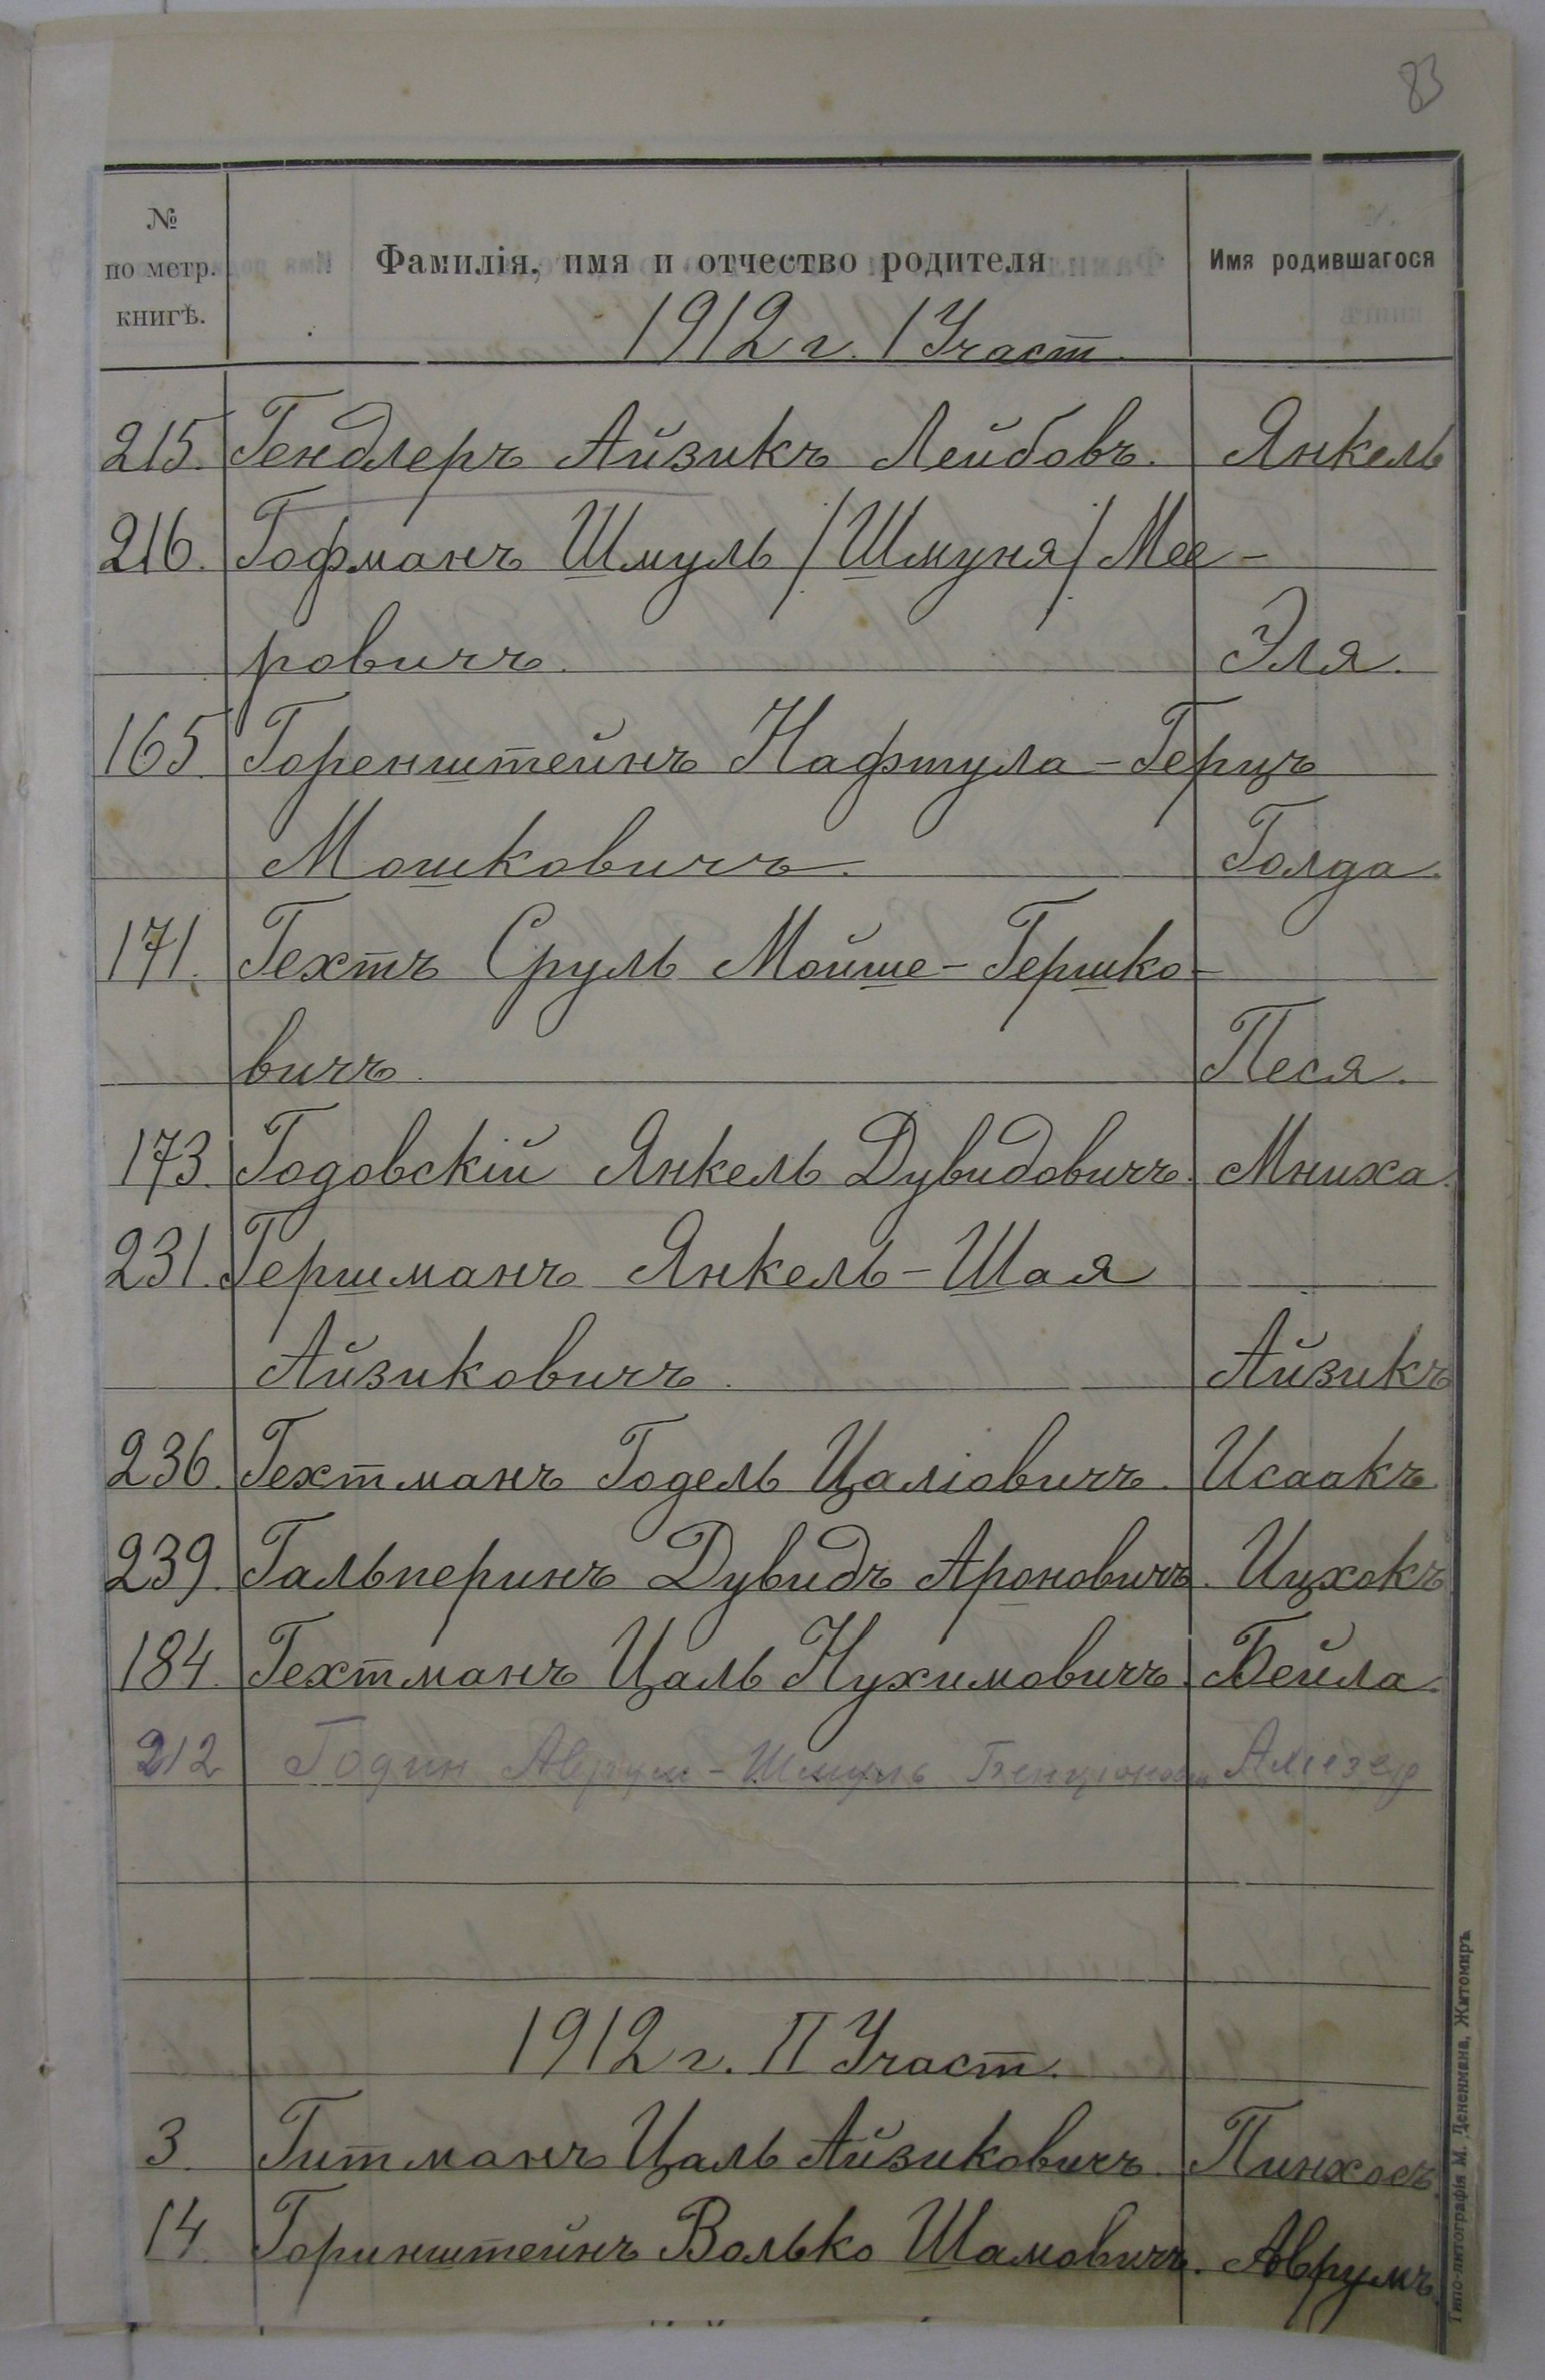 83
№
по метр.
книгѣ.
Фамилія, имя и отчество родителя
Имя родившагося
1912 г. I Участ.
215. Гендлеръ Айзикъ Лейбовъ. Янкель
216. Гофманъ Шмуль /Шмуня/ Мее-
ровичъ. Эля.
165. Горенштейнъ Нафтула-Герцъ
Мошковичъ. Голда.
171. Гехтъ Сруль Мойше-Гершко-
вичъ. Песя.
173. Годовскій Янкель Дувидовичъ. Мниха.
231. Гершманъ Янкель-Шая
Айзиковичъ. Айзикъ
236. Гехтманъ Годель Цаліовичъ. Исаакъ
239. Гальперинъ Дувидъ Ароновичъ. Ицхокъ
184. Гехтманъ Цаль Нухимовичъ. Бейла.
212 Годин Аврум-Шмуль Алiезер
1912 г. II Участ.
3. Гитманъ Цаль Айзиковичъ. Пинхосъ.
14. Горинштейнъ Волько Шамовичъ. Аврумъ.
Типо-литографія М. Дененмана, Житомиръ